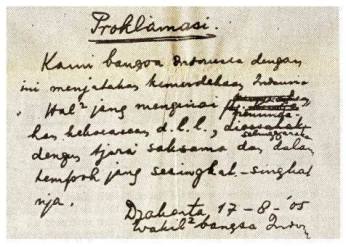 Proklamasi.
Kami bangsa Indonesia dengan
ini menjatakan kemerdekaan Indonesia
Hal² jang mengenai
kekoeasaan d.l.l., diselenggarakan
dengan tjara saksama dan dalam
tempoh jang sesingkat-singkat
nja.
Djakarta, 17-8-'05
Wakil² bangsa Indon